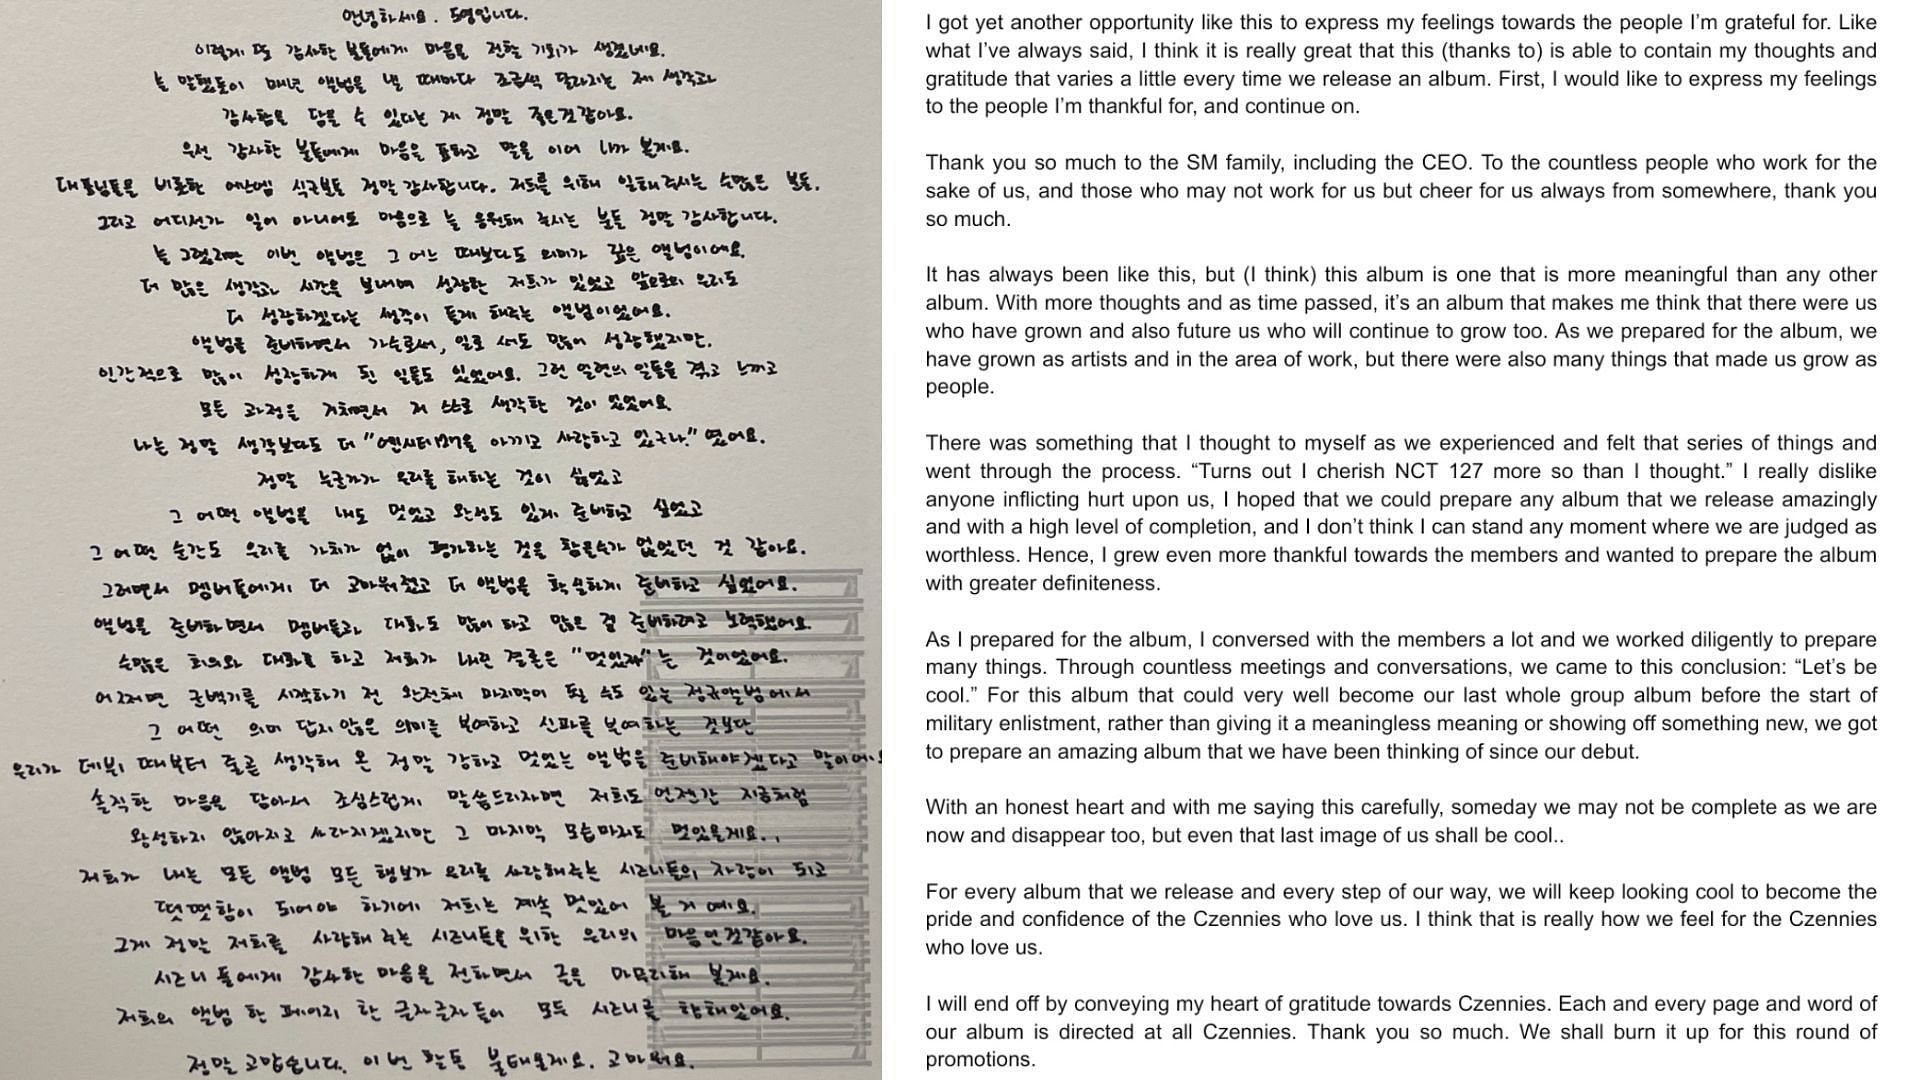 안녕하세요. 도영입니다.
이렇게 또 감사한 분들에게 마음을 전할 기회가 생겼네요.
늘 말했듯이 매년 앨범을 낼 때마다 조금씩 달라지는 제 생각과
감사함을 담을 수 있다는 게 정말 좋은것같아요.
우선 감사한 분들에게 마음을 표하고 말을 이어 나가 볼게요.
대표님들을 비롯한 에스엠 식구분들 정말 감사합니다. 저희를 위해 일해주시는 수많은 분들.
그리고 어디선가 일이 아니어도 마음으로 늘 응원해 주시는 분들 정말 감사합니다.
늘 그랬지만 이번 앨범은 그 어느 때보다도 의미가 깊은 앨범이에요.
더 많은 생각과 시간을 보내며 성장한 저희가 있었고 앞으로의 우리도
더 성장하겠다는 생각이 들게 해주는 앨범이었어요.
앨범을 준비하면서 가수로써, 일로 서도 많이 성장했지만.
인간적으로 많이 성장하게 된 일들도 있었어요. 그런 일련의 일들을 겪고 느끼고
모든 과정을 거치면서 저 스스로 생각한 것이 있었어요
나는 정말 생각보다도 더 "엔시티127을 아끼고 사랑하고 있구나." 였어요.
정말 누군가가 우리를 해하는 것이 싫었고
그 어떤 앨범을 내도 멋있고 완성도 있게 준비하고 싶었고
그 어떤 순간도 우리를 가치가 없이 평가하는 것을 참을수가 없었던 것 같아요.
그러면서 멤버들에게 더 고마워졌고 더 앨범을 확실하게 준비하고 싶었어요.
앨범을 준비하면서 멤버들과 대화도 많이 하고 많은 걸 준비하려고 노력했어요.
수많은 회의와 대화를 하고 저희가 내린 결론은 "멋있자"는 것이었어요.
어쩌면 군백기를 시작하기 전 완전체 마지막이 될 수도 있는 정규앨범에서
그 어떤 의미 답지 않은 의미를 부여하고 신파를 부여하는 것보단
우리가 데뷔 때부터 줄곧 생각해 온 정말 강하고 멋있는 앨범을 준비해야겠다고 말이에요
솔직한 마음을 담아서 조심스럽게 말씀드리자면 저희도 언젠간 지금처럼
왕성하지 않아지고 사라지겠지만 그 마지막 모습마저도 멋있을게요..
저희가 내는 모든 앨범 모든 행보가 우리를 사랑해주는 시즈니들의 자랑이 되고
떳떳함이 되어야 하기에 저희는 계속 멋있어 볼 거 예요.
그게 정말 저희를 사랑해 주는 시즈니들을 위한 우리의 마음인것같아요.
시즈니 들에게 감사한 마음을 전하면서 글을 마무리해 볼게요.
저희의 앨범 한 페이지 한 글자글자들이 모두 시즈니를 향해있어요.
정말 고맙습니다. 이번 활동 불태울게요. 고마워요.
I got yet another opportunity like this to express my feelings towards the people I'm grateful for. Like
what I've always said, I think it is really great that this (thanks to) is able to contain my thoughts and
gratitude that varies a little every time we release an album. First, I would like to express my feelings
to the people I'm thankful for, and continue on.
Thank you so much to the SM family, including the CEO. To the countless people who work for the
sake of us, and those who may not work for us but cheer for us always from somewhere, thank you
so much.
It has always been like this, but (I think) this album is one that is more meaningful than any other
album. With more thoughts and as time passed, it's an album that makes me think that there were us
who have grown and also future us who will continue to grow too. As we prepared for the album, we
have grown as artists and in the area of work, but there were also many things that made us grow as
people.
There was something that I thought to myself as we experienced and felt that series of things and
went through the process. "Turns out I cherish NCT 127 more so than I thought." I really dislike
anyone inflicting hurt upon us, I hoped that we could prepare any album that we release amazingly
and with a high level of completion, and I don't think I can stand any moment where we are judged as
worthless. Hence, I grew even more thankful towards the members and wanted to prepare the album
with greater definiteness.
As I prepared for the album, I conversed with the members a lot and we worked diligently to prepare
many things. Through countless meetings and conversations, we came to this conclusion: "Let's be
cool." For this album that could very well become our last whole group album before the start of
military enlistment, rather than giving it a meaningless meaning or showing off something new, we got
to prepare an amazing album that we have been thinking of since our debut.
With an honest heart and with me saying this carefully, someday we may not be complete as we are
now and disappear too, but even that last image of us shall be cool..
For every album that we release and every step of our way, we will keep looking cool to become the
pride and confidence of the Czennies who love us. I think that is really how we feel for the Czennies
who love us.
I will end off by conveying my heart of gratitude towards Czennies. Each and every page and word of
our album is directed at all Czennies. Thank you so much. We shall burn it up for this round of
promotions.